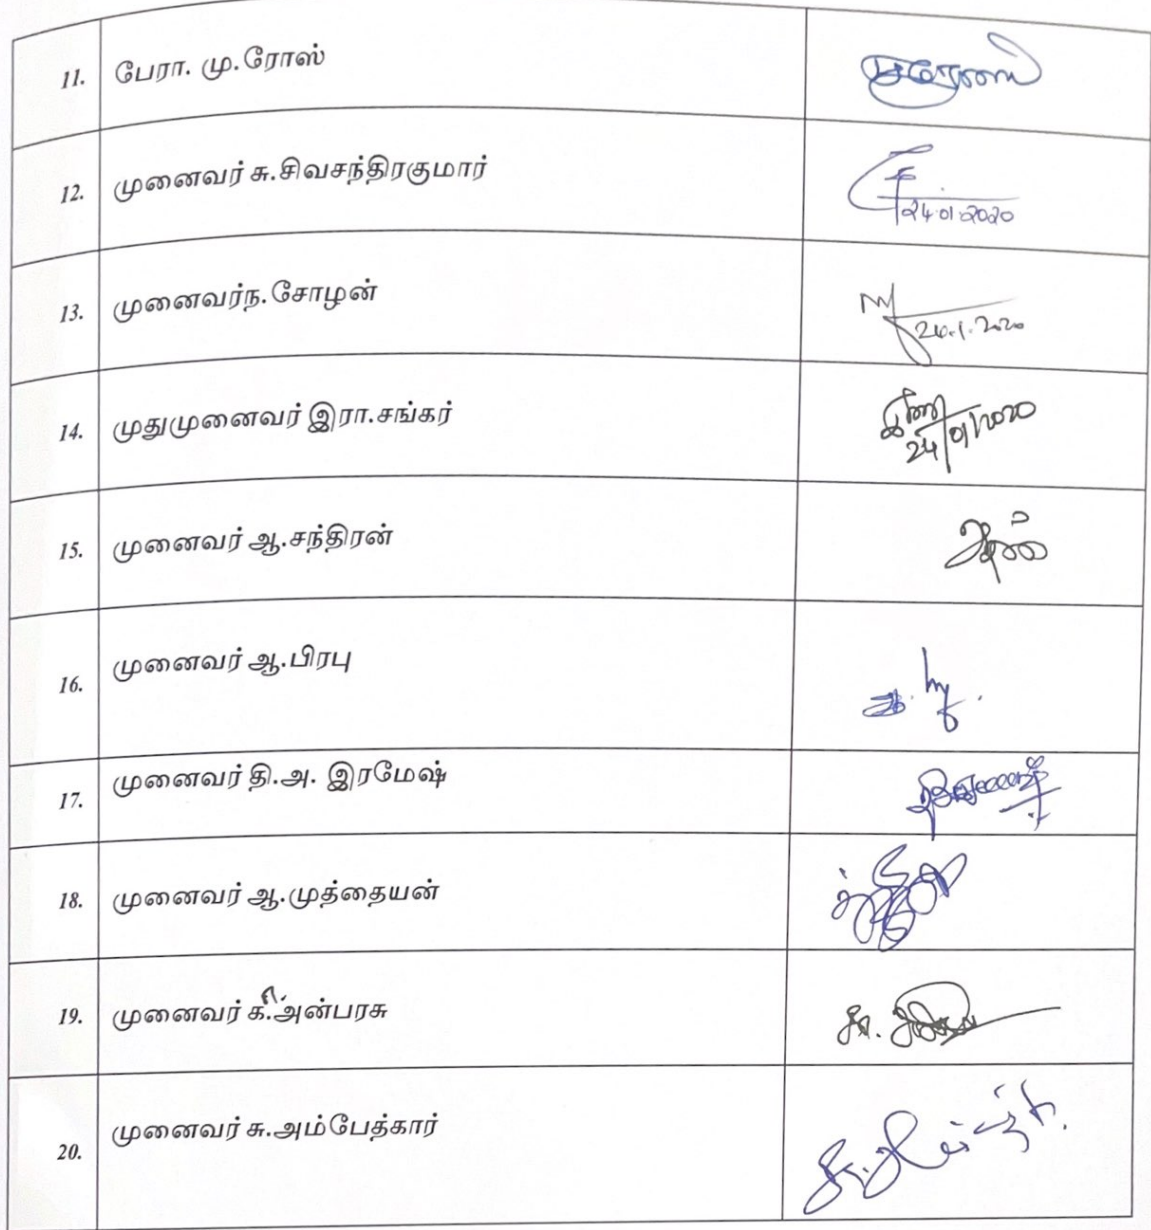 11. பேரா. மு.ரோஸ்
12. முனைவர் சு.சிவசந்திரகுமார் 24.01.2020
13. முனைவர்ந.சோழன் 24.1.2020
14. முதுமுனைவர் இரா.சங்கர் 24/01/2020
15. முனைவர் ஆ.சந்திரன்
16. முனைவர் ஆ.பிரபு
17. முனைவர் தி.அ. இரமேஷ்
18. முனைவர் ஆ.முத்தையன்
19. முனைவர் கா.அன்பரசு
20. முனைவர் சு.அம்பேத்கார்